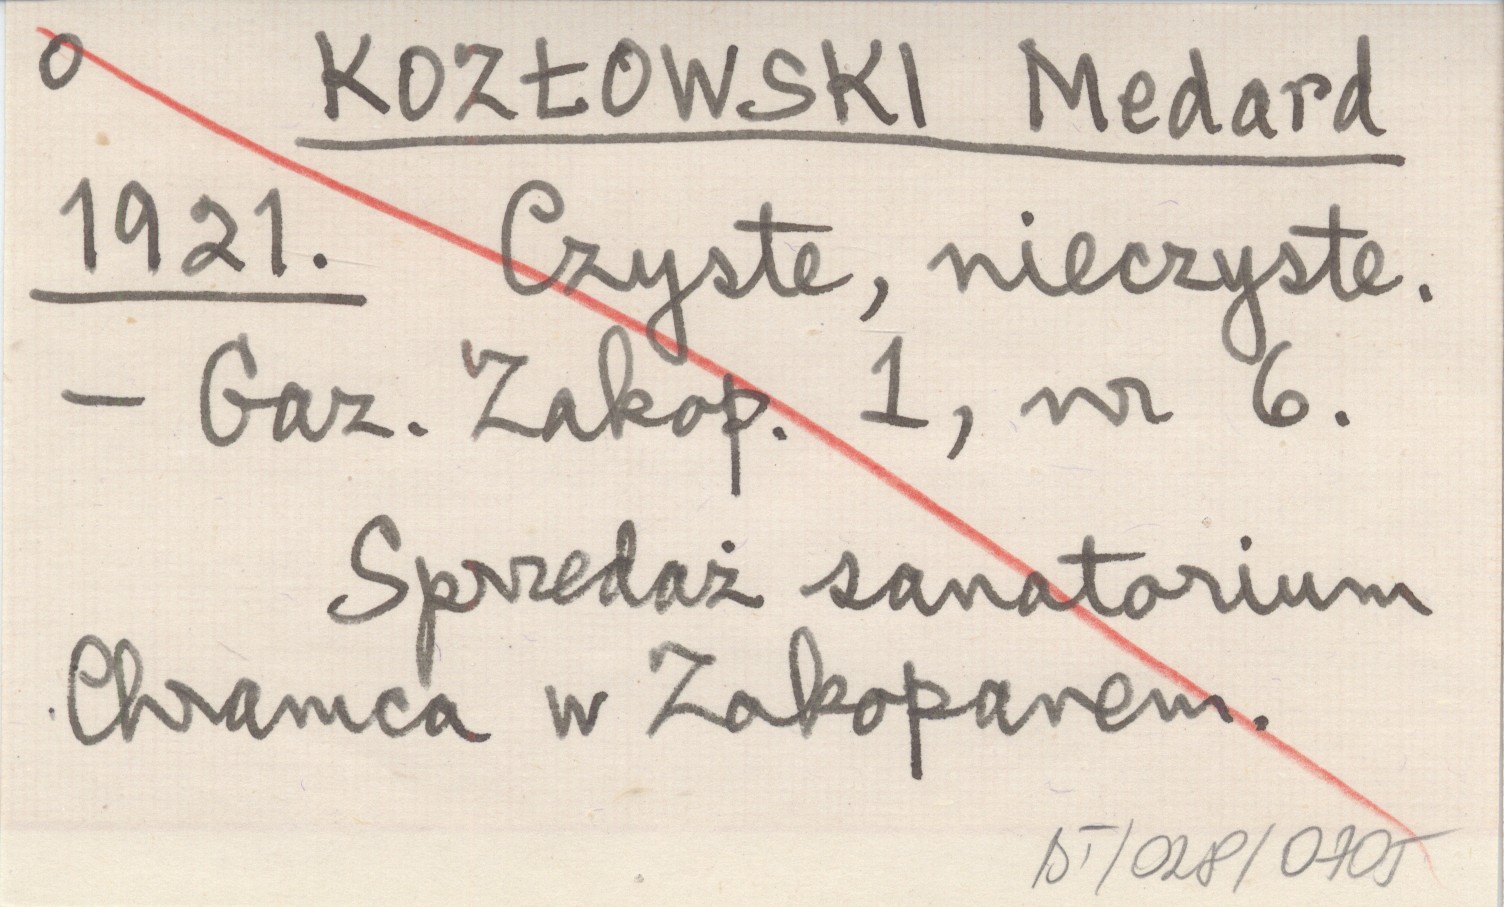 o KOZŁOWSKI Medard
1921. Czyste, nieczyste.
– Gaz. Zakop. 1, nr 6.
Sprzedaż sanatorium
Chramca w Zakopanem.
BT/028/0705